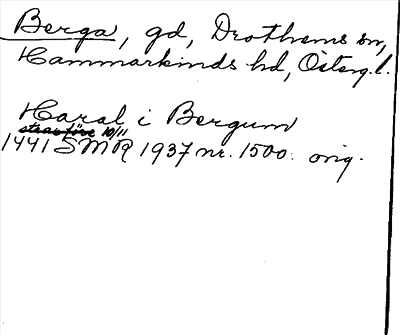 Berga, gd, Drothems sn,
Hammarkinds hd, Östergl.
Haral i Bergum
strax före 10/11
1441 SMR 1937 nr. 1500. orig.